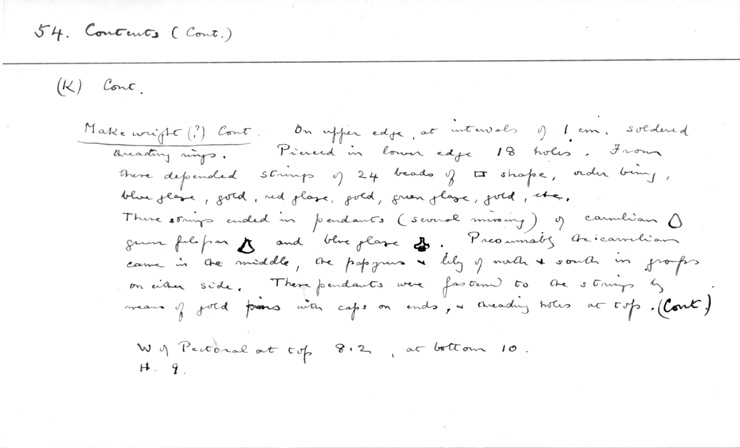 54. Contents (Cont.)
(K) Cont.
Makeweight (?) Cont. On upper edge, at intervals of 1 cm. soldered
threading rings. Pierced in lower edge 18 holes. From
these depended strings of 24 beads of shape, order being,
blue glaze, gold, red glaze, gold, green glaze, gold, etc.
These strings ended in pendants (several missing) of carnelian
green felspar and blue glaze. Presumably the carnelian
came in the middle, the papyrus & lily of north & south in groups
on either side. These pendants were fastened to the strings by
means of gold pins with caps on ends, & threading holes at top. (Cont.)
W of Pectoral at top 8.2, at bottom 10.
H. 9.